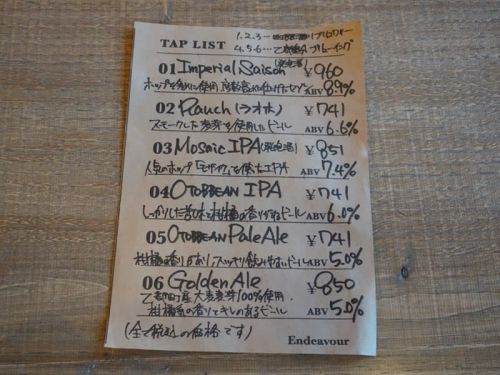 1.2.3…ブルワリー
TAP LIST 4.5.6…乙 ブリューイング
01 Imperial Saison (発泡酒) ¥960
ホップを 使用 ABV 8.9%
02 Rauch (ラオホ) ¥741
スモークした麦芽を使用したビール ABV 6.6%
03 Mosaic IPA (発泡酒) ¥851
人気のホップ「モザイク」を使ったIPA ABV 7.4%
04 OTOBBEAN IPA ¥741
しっかりした苦味と柑橘の香りがするビール ABV 6.0%
05 OTOBBEAN Pale Ale ¥741
柑橘の香りがあり、スッキリ飲みやすいビール ABV 5.0%
06 Golden Ale ¥850
乙部町産大麦麦芽100%使用.
柑橘系の香りとキレのあるビール ABV 5.0%
(全て税込の価格です)
Endeavour